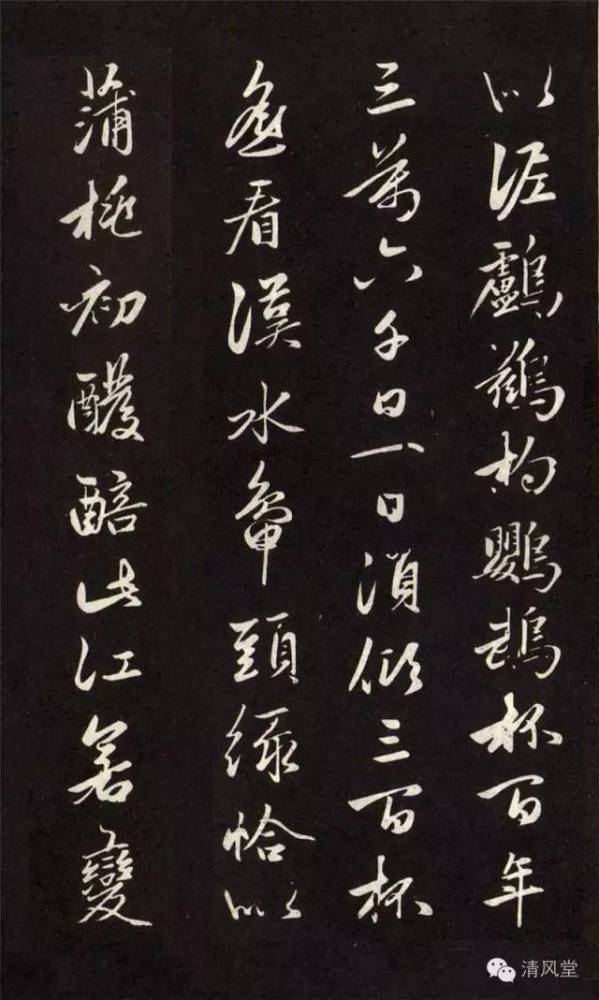 似泥鸕鷀杓鸚鵡杯百年
三萬六千日一日須傾三百杯
遙看漢水鴨頭綠恰似
蒲桃初醱醅此江若變
清风堂